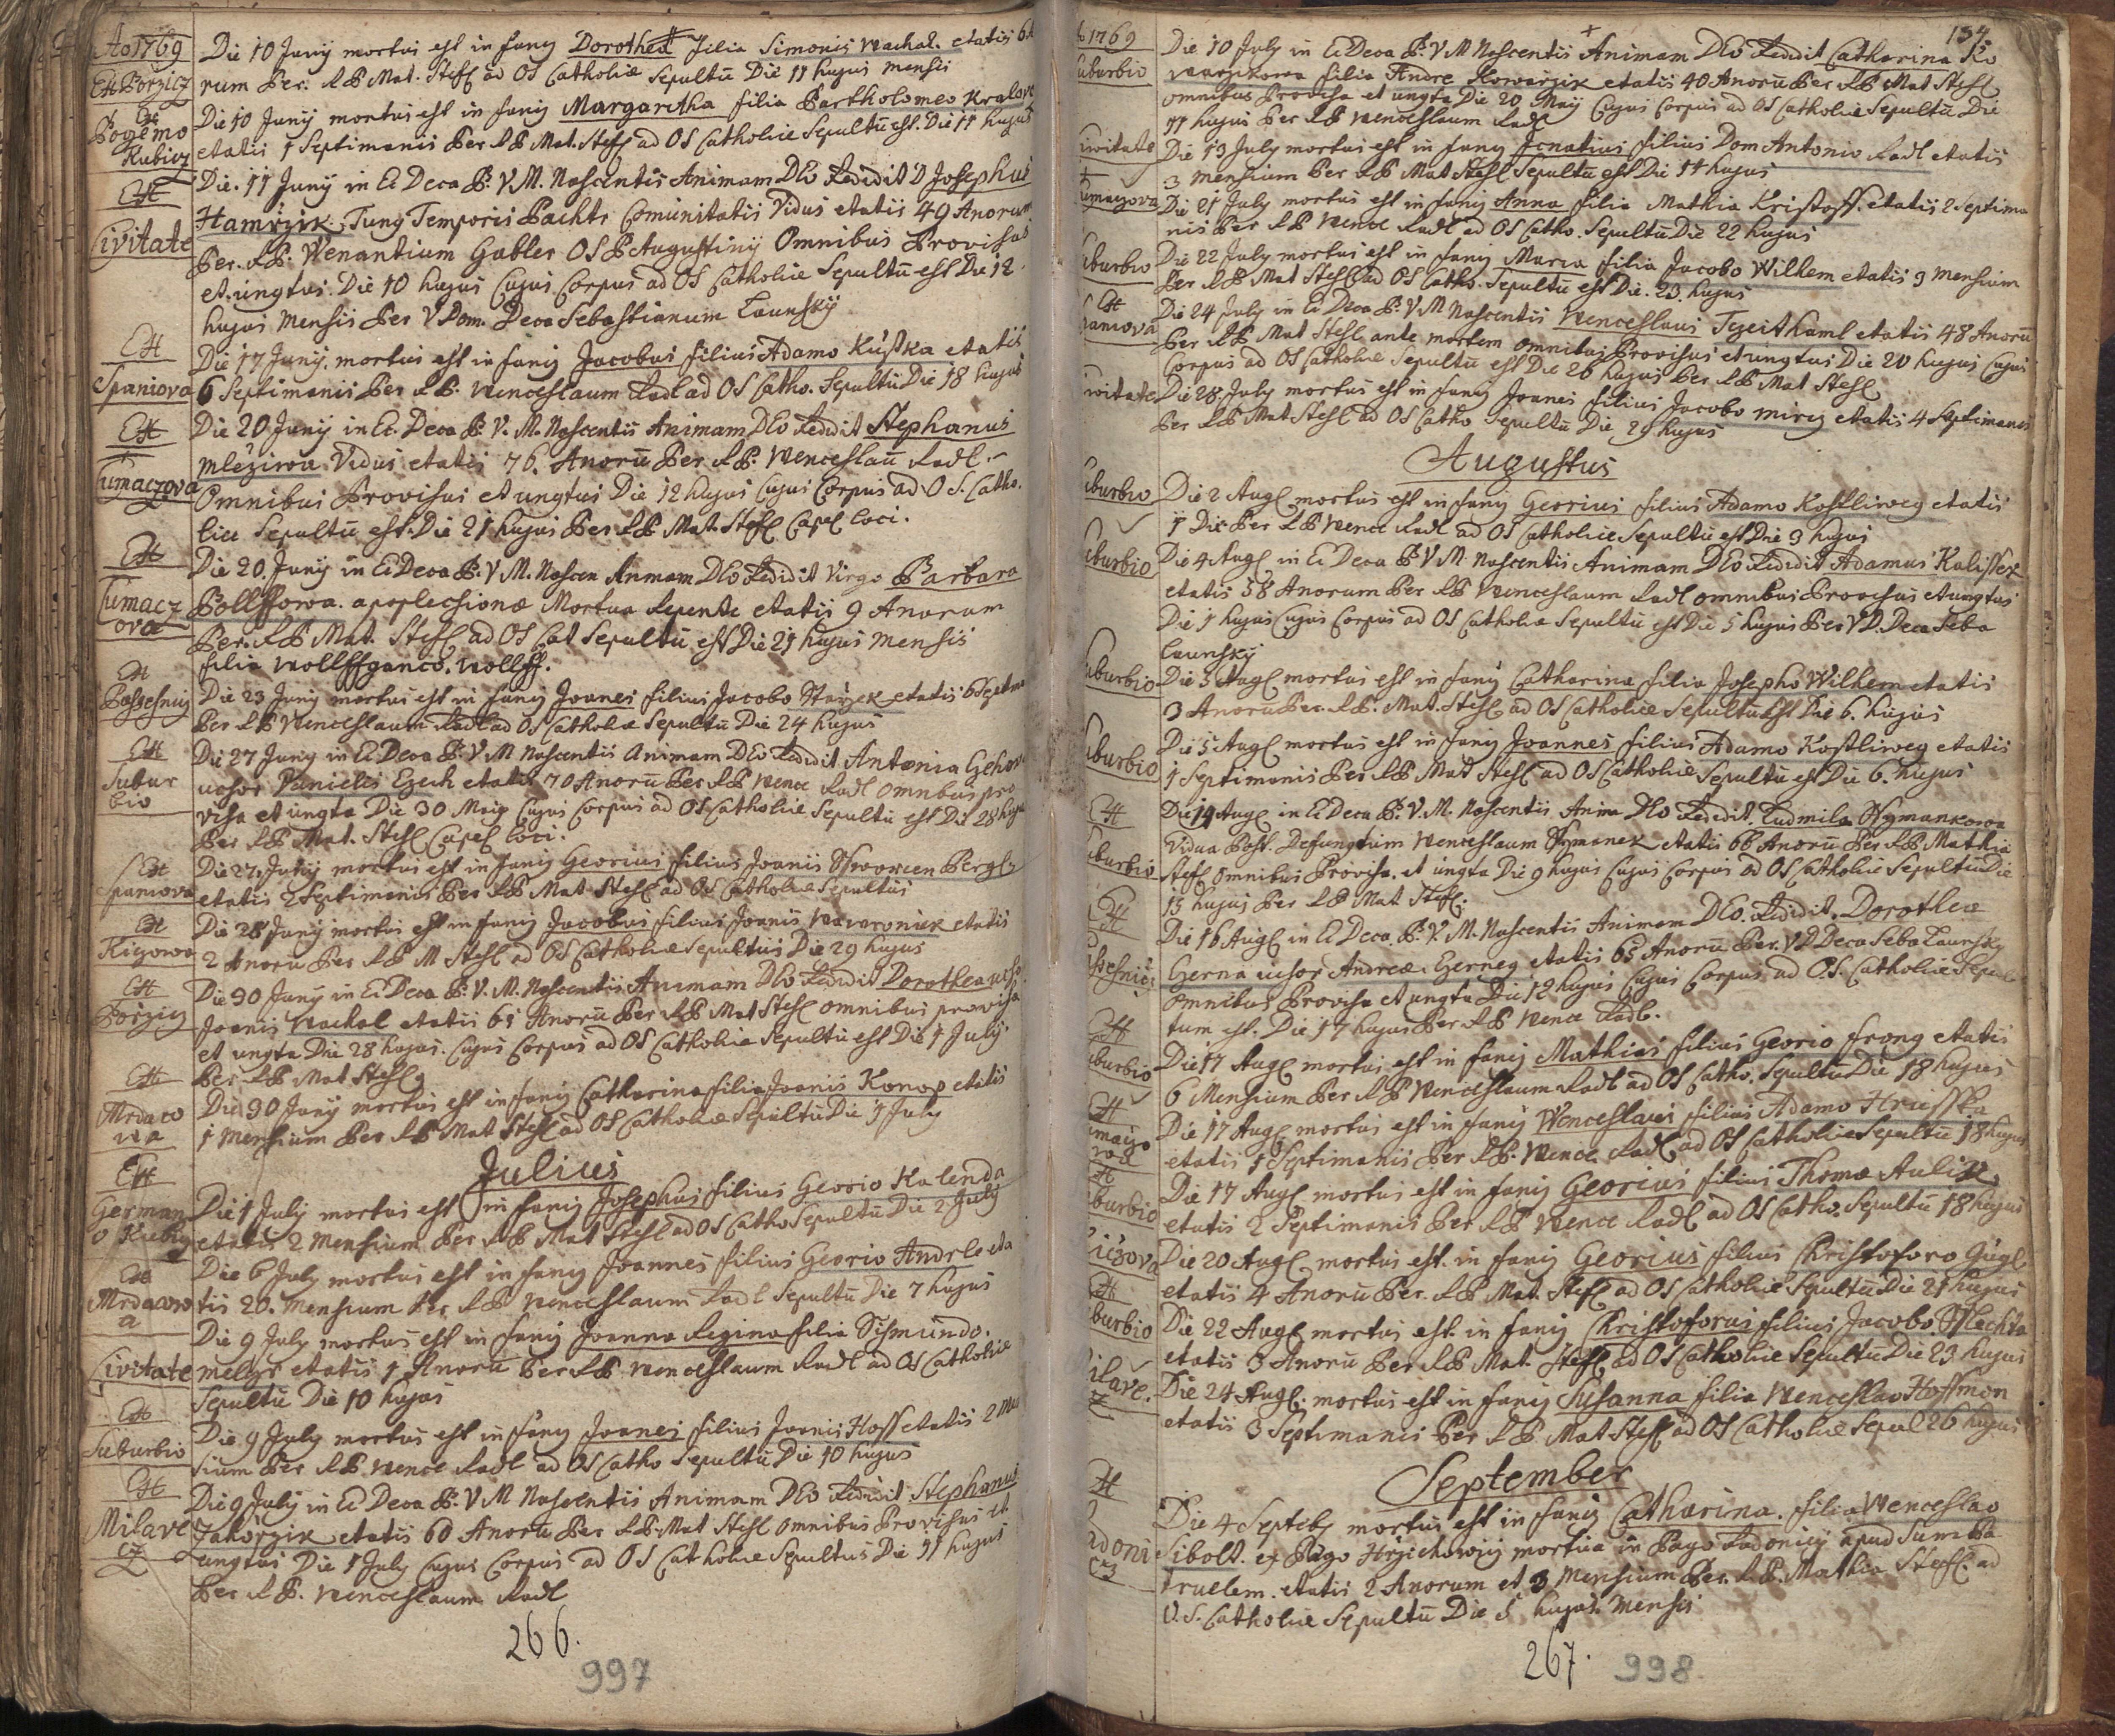 Ao 1769
Die 10 Junÿ mortus est in fang Dorothea Filia Simonis Wachal. etatis
Et Porzicz
rum Per: R P Mat. Stefl ad OS Catholice Sepultu Die 11 hujus mensis
Die 10 Junÿ mortus est in fang Margaretha filia Bartholomeo
Kubicz
etatis 1 Septimanis Per R P Mat. Stefl ad OS Catholice Sepultū est. Die 11 hujus
Die. 11 Junÿ in Ec Deca B: V M. Nascentis Animam DEO Redidit D Josephus
Hamrzik Tung Temporis Pachtr Comunitatis Vidus etatis 49 Anorum
Civitate
Per. R P. Wenantium Gabler OSP Augustinÿ Omnibus Provisus
et ungtus. Die 10 hujus Cujus Corpus ad OS Catholice Sepultū est Die 12.
hujus Mensis Per V Dom. Deca Sebastianum Launskÿ
Et
Die 17 Junÿ. mortus est in fang Jacobus filius Adamo Kuska etatis
Spaniova
6 Septimanis Per R P. Wenceslaum Radl ad OS Catho. Sepultū Die 18 hujus
Et
Die 20 Junÿ in Ec. Deca B: V. M. Nascentis Animam DEO Redidit Stephanus
Mleziwa Vidus etatis 76. Anorū Per R P: Wenceslaū Radl
umaczova
Omnibus Provisus et ungtus Die 12 hujus Cujus Corpus ad O S. Catho.
lice Sepultū est. Die 21 hujus Per R P. Mat. Stefl Capel loci.
Et
Die 20. Junÿ in Ec Deca B. V M. Nascen Anmam DEO Redidit Virgo Barbara
Tumacz
ova
Pollfowa. apoplechione Mortua Repente etatis 9 Anorum
Per. R P Mat. Stefl ad OS Cat Sepultū est Die 21 hujus mensis
filia Wollffganco. Wollff.
Et
Die 23 Junÿ mortus est in fang Joanes filius Jacobo etatis 6
Per R P Wenceslaum Radl ad OS Catholice Sepultū Die 24 hujus
Et
Die 27 Junÿ in Ec Deca B: V M Nascentis Animam DEO Redidit Antonia
Subur
bio
uchor Danielis Ezech etatis 70 Anorū Per R P Wence Radl omnibus pro
visa et ungta Die 30 Maÿ Cujus Corpus ad OS Catholice Sepultū est Die 28
Per R P Mat. Stefl Capel loci.
Et
Die 27 Junÿ mortus est in fang Georius filius Joanis
Spaniova
etatis 2 Septimanis Per R P Mat Stefl ad OS Catholice Sepultus
Et
Die 28 Junÿ mortus est in fang Jacobus filius Joanis etatis
2 Anorū Per R P M Stefl ad OS Catholice Sepultus Die 29 hujus
Et
Die 30 Junÿ in Ec Deca B: V. M. Nascentis Animam DEO Redidit Dorothea
Porzicz
Joanis Wachal etatis 65 Anorū Per R P Mat Stefl omnibus provisa
et ungta Die 28 hujus. Cujus Corpus ad OS Catholice Sepultū est Die 1 July
Per R P Mat Stefl
Et
Die 30 Junÿ mortus est in fang Catharina filia Joanis Konop etatis
Mrdaco
wa
1 Mensium Per R P Mat Stefl ad OS Catholice Sepultū Die 1 July
Julius
Et
Die 1 July mortus est in fang Josephus filius Georio Kalenda
German
o Kubiz
etatis 2 Mensium Per R P Mat Stefl ad OS Catho Sepultū Die 2 July
Et
Die 6 July mortus est in fang Joannes filius Georio Andrle eta
Mrdacow
a
tis 20. Mensium Per R P Wenceslaum Radl Sepultū Die 7 hujus
Die 9 July mortus est in fang Joanna Regina filia Sismundo.
Civitate
melzr etatis 1 Anorū Per R P Wenceslaum Radl ad OS Catholice
Sepultū Die 10 hujus
Et
Die 9 July mortus est in fang Joanes filius Joanis Hoff etatis 2
Suburbio
sium Per R P. Wence Radl ad OS Catho Sepultū Die 10 hujus
Et
Die 9 July in Ec Deca B: V M Nascentis Animam DEO Redidit Stephanus
Milave
cz
Jahorzik etatis 60 Anorū Per R P. Mat Stefl omnibus Provisus et
ungtus Die 1 July Cujus Corpus ad OS Catholice Sepultus Die 11 hujus
Per R P. Wenceslaum Radl
266.
997
134
1769
Die 10 July in Ec Deca B: V M Nascentis Animam DEO Redidit Catharina Ko
uburbio
warzikowa filia Andre Kowarzik etatis 40 Anorū Per R P Mat Stefl
omnibus Provisa et ungta Die 20 Maÿ Cujus Corpus ad OS Catholice Sepultū Die
11 hujus Per R P Wenceslaum Radl
ivitate
Die 13 July mortus est in fang Icnatius filius Dom Antonio Radl etatis
3 mensium Per R P Mat Stefl Sepultū est Die 14 hujus
umaczova
Die 21 July mortus est in fang Anna filia Mathia Kristoff. etatis 2 Septima
nis Per R P Wence Radl ad OS Catho. Sepultū Die 22 hujus
uburbio
Die 22 July mortus est in fang Maria filia Jacobo Wilhem etatis 9 mensium
Per R P Mat Stefl ad OS Catho. Sepultū est Die. 23. hujus
Et
Die 24 July in Ec Deca B: V M Nascentis Wenceslaus etatis 48 Anorū
paniova
Per R P Mat Stefl ante mortem omnibus Provisus et ungtus Die 20 hujus Cujus
Corpus ad OS Catholice Sepultū est Die 26 hujus Per R P Mat Stefl
ivitate
Die 28. July mortus est in fang Joanes filius Jacobo etatis 4 Septimanis
Per R P Mat Stefl ad OS Catho Sepultū Die 29 hujus
Augustus
uburbio
Die 2 Augl mortus est in fang Georius filius Adamo Kostliweg etatis
1 Die Per R P Wence Radl ad OS Catholice Sepultū est Die 3 hujus
uburbio
Die 4 Augl in Ec Deca B: V M Nascentis Animam DEO Redidit Adamus Kalissek
etatis 58 Anorum Per R P Wenceslaum Radl omnibus Provisus et ungtus
Die 1 hujus Cujus Corpus ad OS Catholice Sepultū est Die 5 hujus Per V D. Deca Seba
Launskÿ
uburbio
Die 5 Augl mortus est in fang Catharina filia Josepho Wilhem etatis
3 Anorū Per. R P. Mat. Stefl ad OS Catholice Sepultū est Die 6. hujus
uburbio
Die 5 Augl mortus est in fang Joannes filius Adamo Kostliweg etatis
1 Septimanis Per R P Mat Stefl ad OS Catholice Sepultū est Die 6. hujus
Et
Die 14 Augl in Ec Deca B: V. M. Nascentis Anima DEO Redidit. Ludmila
uburbio
Vidua Post. Defungtum Wenceslaum etatis 66 Anorū Per R P Mathia
Stefl omnibus Provisa. et ungta Die 9 hujus Cujus Corpus ad OS Catholice Sepultū Die
15 hujus Per R P Mat Stefl.
Et
Die 16 Augl in Ec Deca. B: V. M. Nascentis Animam DEO. Redidit. Dorothea
Gerna uchor Andrea. Gerneg etatis 65 Anorū Per. V D Deca Seba Launskÿ
omnibus Provisa et ungta Die 12 hujus Cujus Corpus ad OS. Catholice Sepul
tum est. Die 17 hujus Per R P Wence Radl.
Et
Die 17 Augl mortus est in fang Mathias filius Georio frong etatis
uburbio
6 Mensium Per R P Wenceslaum Radl ad OS Catho. Sepultū Die 18 hujus
Et
Die 17 Augl mortus est in fang Wenceslaus filius Adamo Hruska
etatis 1 Septimanis Per R P. Wence Radl ad OS Catholice Sepultū 18 hujus
Et
Die 17 Augl mortus est in fang Georius filius Thoma Aulik
uburbio
etatis 2 Septimanis Per R P Wence Radl ad OS Catho. Sepultū 18 hujus
Die 20 Augl mortus est. in fang Georius filius Christoforo Gugl
etatis 4 Anorū Per. R P Mat. Stefl ad OS Catholice Sepultū Die 21 hujus
Et
Die 22 Augl mortus est. in fang Christoforus filius Jacobo
uburbio
etatis 3 Anorū Per R P Mat. Stefl ad OS Catholice Sepultū Die 23 hujus
ilave.
Die 24 Augl. mortus est in fang Susanna filia Wenceslao Hoffmon
etatis 3 Septimanis Per R P Mat Stefl ad OS Catholice Sepul 26 hujus
September
Et
Die 4 Septeby mortus est in fang Catharina. filia Wenceslao
adoni
cz
Sibolt. ex Pago mortua in Pago Radonicÿ apud
truelem. etatis 2 Anorum et 3 Mensium Per. R. P. Mathia Stefl. ad
O. S. Catholice Sepultū Die 5 hujus Mensis
267.
998